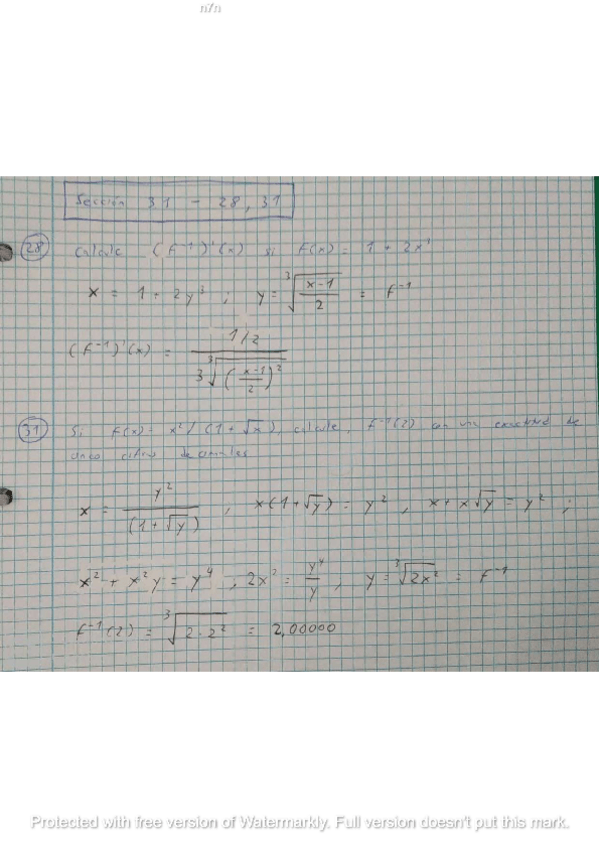 n7n
Sección 31 - 28, 31
28 Calcule (f⁻¹)'(x) si f(x) = 1 + 2x³
x = 1 + 2y³ ; y = ∛((x-1)/2) = f⁻¹
(f⁻¹)'(x) = (1/2) / (3∛((x-1)/2)²)
31 Si f(x) = x² / (1 + √x), calcule, f⁻¹(2) con una exactitud de
cinco cifras decimales
x = y² / (1 + √y) , x(1 + √y) = y² , x + x√y = y² ;
x² + x²y = y⁴ , 2x² = y⁴/y , y = ∛(2x²) = f⁻¹
f⁻¹(2) = ∛(2·2²) = 2,00000
Protected with free version of Watermarkly. Full version doesn't put this mark.